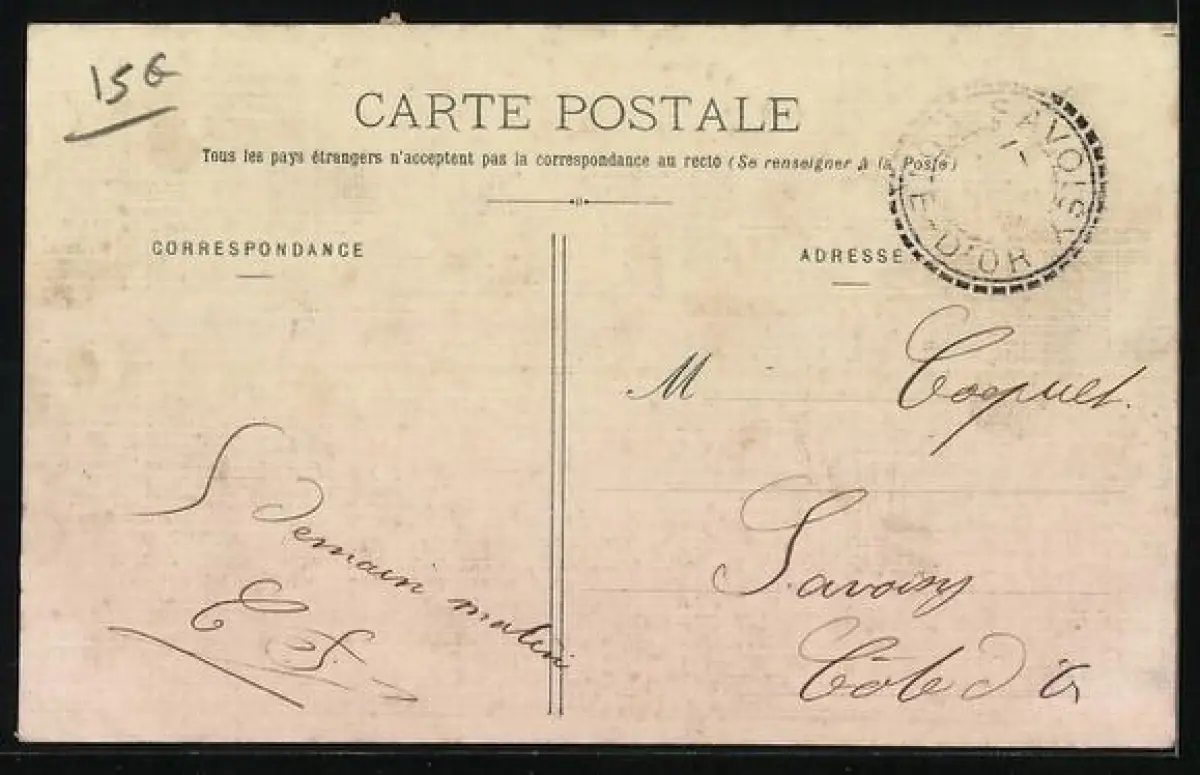 15€
CARTE POSTALE
Tous les pays étrangers n'acceptent pas la correspondance au recto (Se renseigner à la Poste)
SAVOISY
CÔTE-D'OR
CORRESPONDANCE
ADRESSE
M Coquet.
Savoisy
Côte d'Or
demain matin